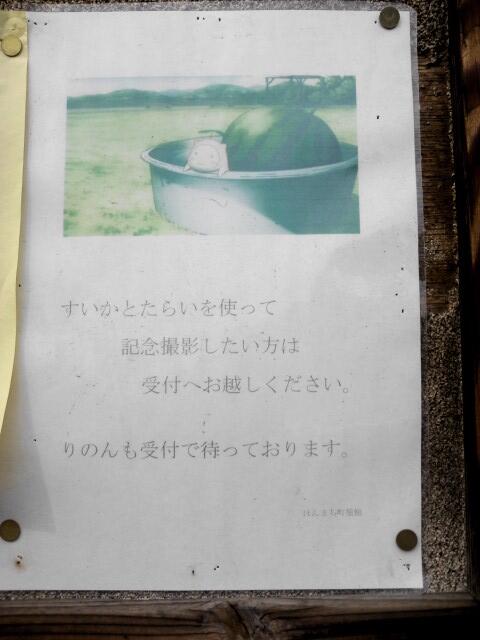 すいかとたらいを使って
記念撮影したい方は
受付へお越しください。
りのんも受付で待っております。